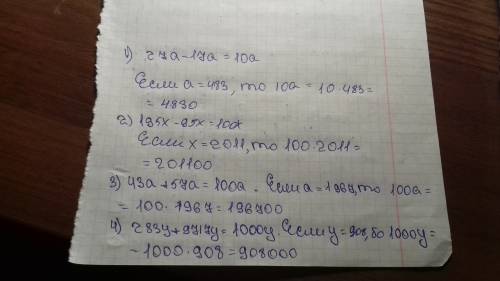 1) 27а-17а=10а
Если а=483, то 10а=10·483=
=4830
2) 195х-95х=100х
Если х=2011, то 100·2011=
=201100
3) 43а+57а=100а. Если а=1967, то 100а=
=100·1967=196700
4) 283у+9717у=1000у. Если у=908, то 1000у=
-1000·908=908000